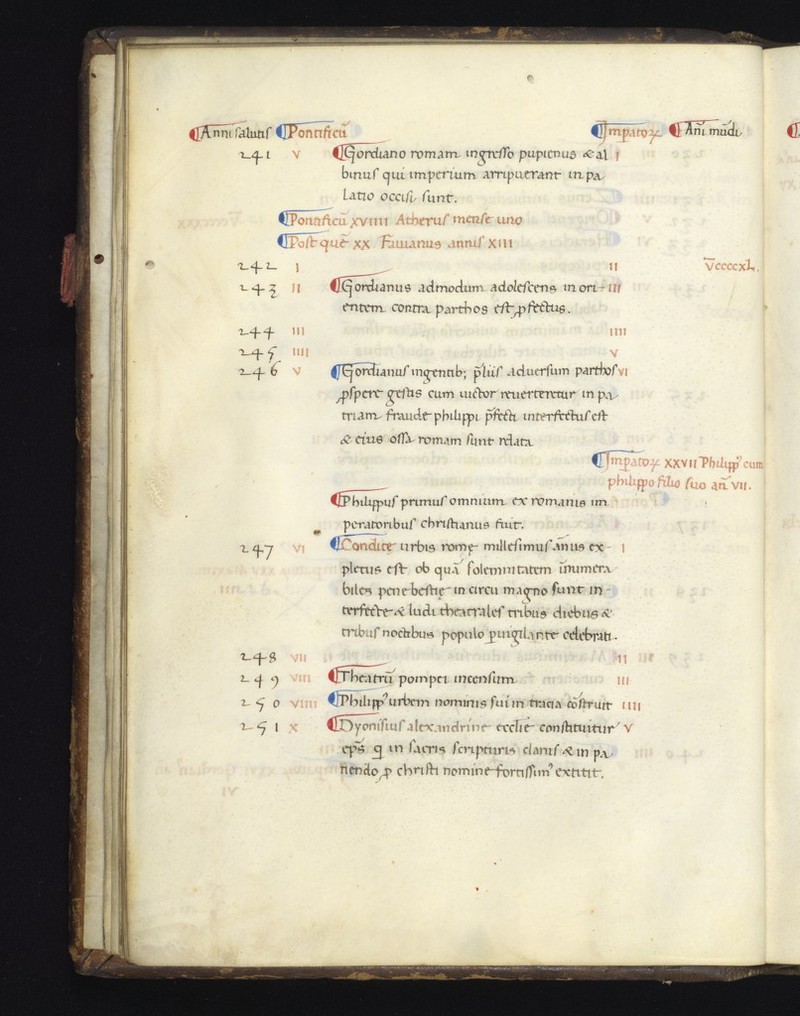 Anni salutis Pontificū Impatoꝝ Añi mūdi
241 v Gordiano romam ingresso pupienus & al i
binus qui imperium arripuerant in pa
latio occisi sunt.
Pontificū xviiii Atherus mense uno
Post quē xx Fauianus annis xiii
242 i ii v̄ccccxl.
243 ii Gordianus admodum adolescens in ori- iii
entem contra parthos est ꝓfectus.
244 iii iiii
245 iiii v
246 v Gordianus ingentib; p̄liis aduersum parthos vi
ꝓspere gestis cum uictor reuerteretur in pa
triam fraude philippi p̄fecti interfectus est
& eius ossa romam sunt relata
Impatoꝝ xxvii Philipp᾽ cum
philippo filio suo añ vii.
Philippus primus omnium ex romanis im
peratoribus christianus fuit.
247 vi Condite urbis romę millesimus annus ex- i
pletus est ob quā solemnitatem īnumera
biles pene bestię in circu magno sunt in-
terfecte & ludi theatrales tribus diebus &
tribus noctibus populo ꝑuigilante celebrati.
248 vii ii
249 viii Theatrū pompei incensum iii
250 viiii Philipp᾽ urbem nominis sui in tracia cōstruit iiii
251 x Dyonisius alexandrine ecclie constituitur v
ep̄s q in sacris scripturis clarus & in pa
tiendo ꝓ christi nomine fortissim᾽ extitit.